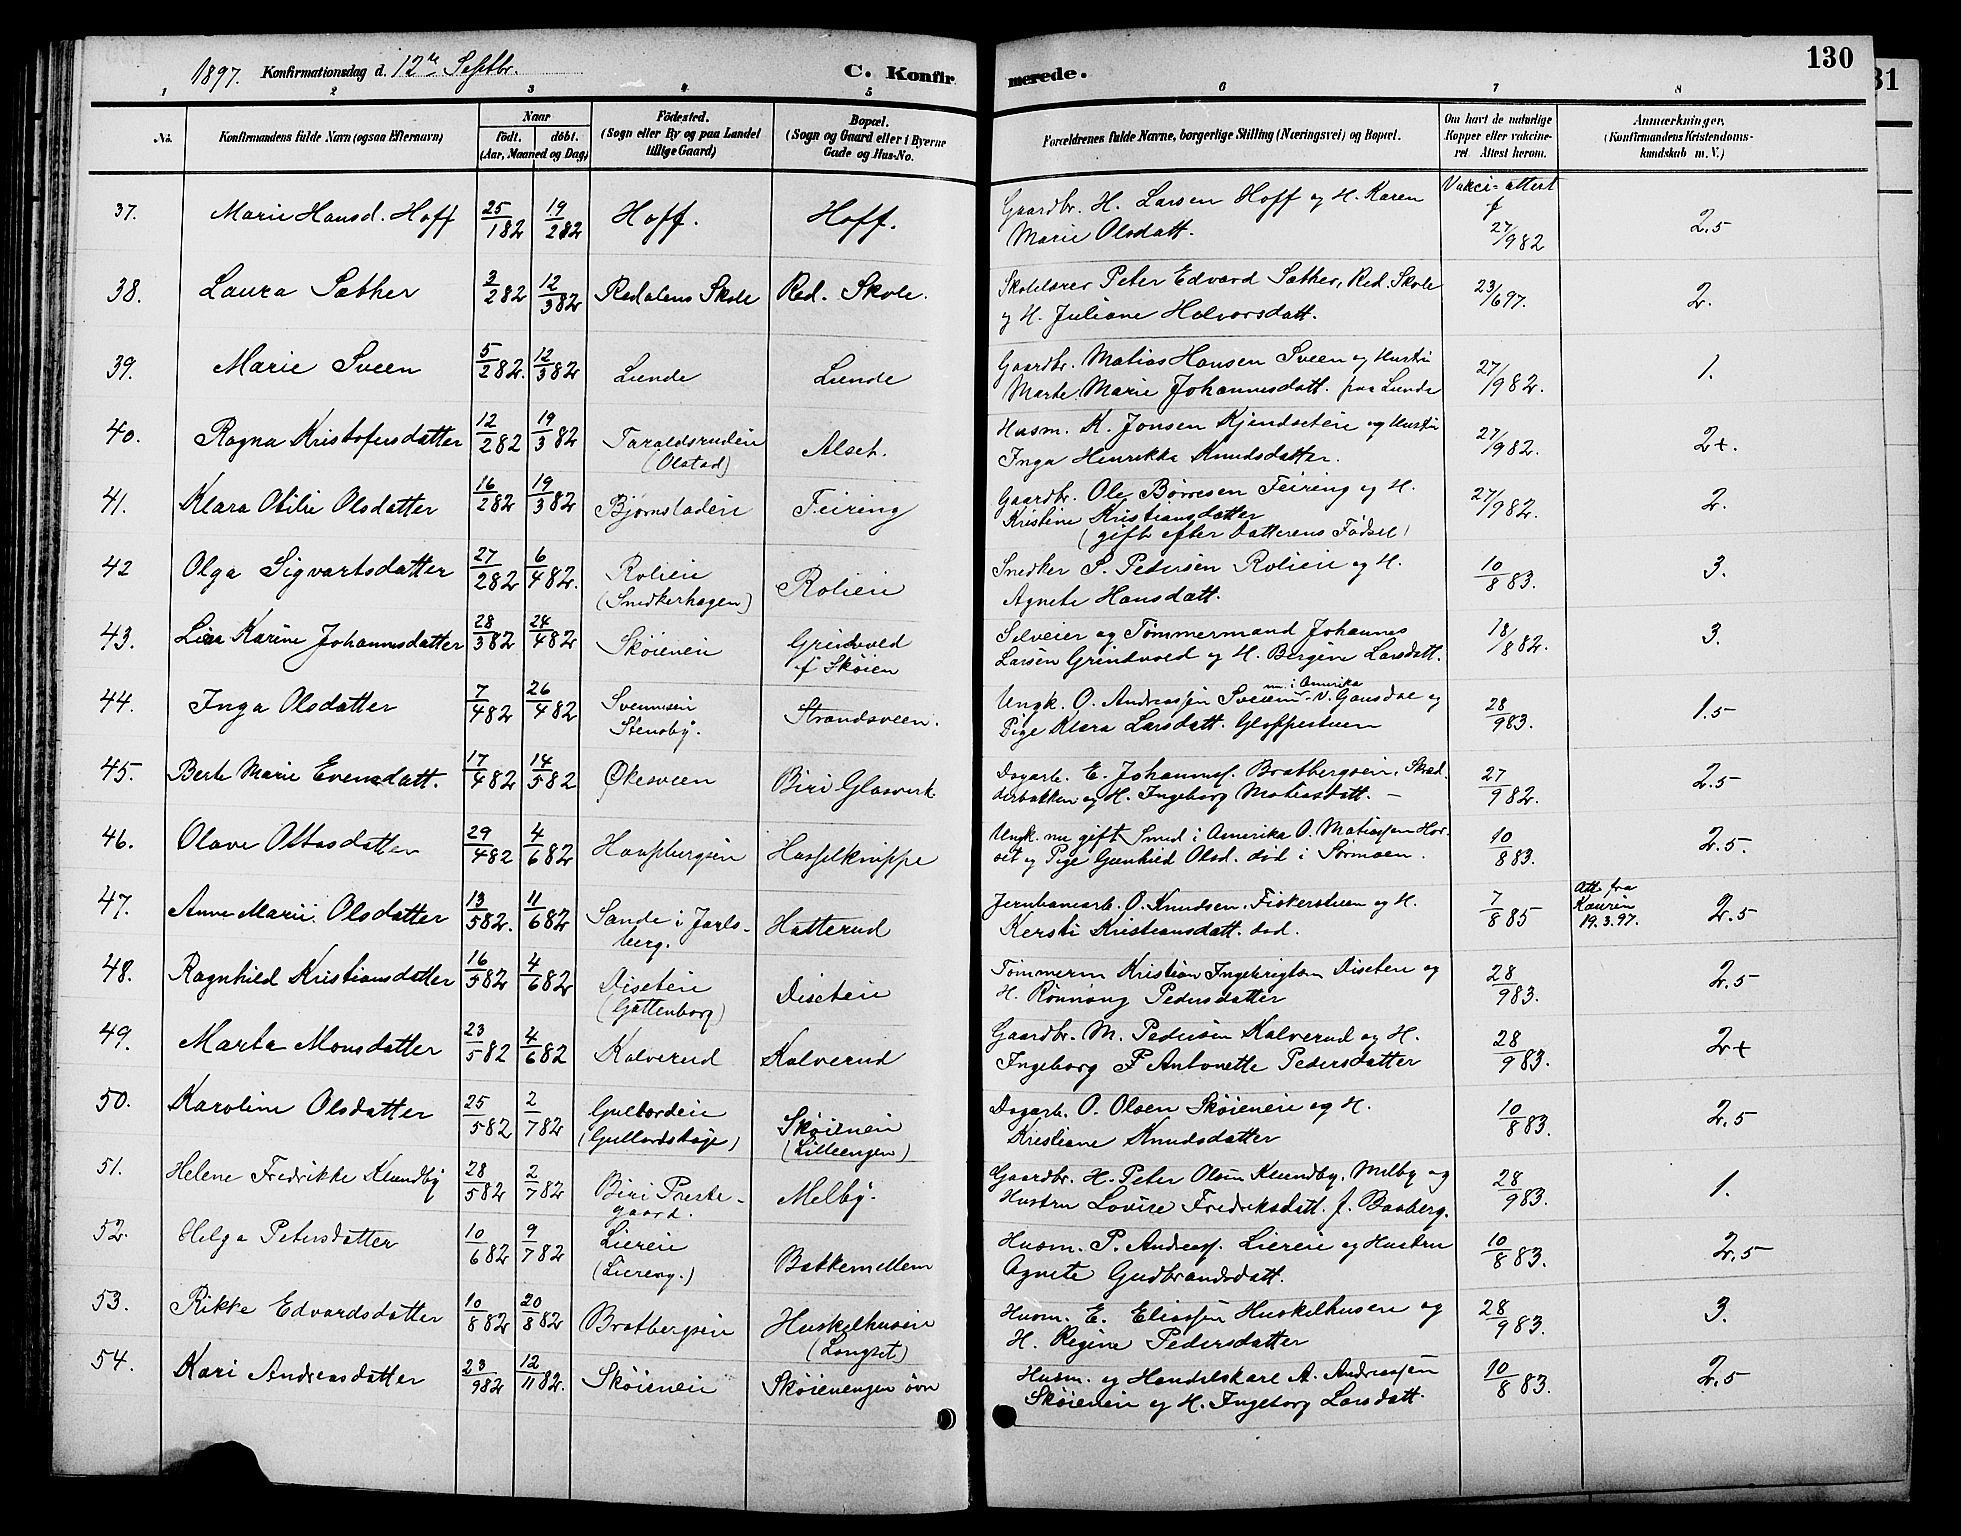 1897. Konfirmationsdag d. 12te Septbr.
C. Konfirmerede.
130
1 2 3 4 5 6 7 8
No. Konfirmandens fulde Navn (ogsaa Efternavn) Naar födt. döbt. (Aar, Maaned og Dag) Födested. (Sogn eller By og paa Landet tillige Gaard) Bopæl. (Sogn og Gaard eller i Byerne Gade og Hus-No. Forældrenes fulde Navne, borgerlige Stilling (Næringsvei) og Bopæl. Om havt de naturlige Kopper eller vakcineret Attest herom. Anmærkninger, (Konfirmandens Kristendomskundskab m. V.)
37. Marie Hansd. Hoff 25/1 82 19/2 82 Hoff. Hoff. Gaardbr. H. Larsen Hoff og H. Karen Vakci-attest
Marie Olsdatt. 27/9 82 2.5
38. Laura Sæther 3/2 82 12/3 82 Redalens Skole Red. Skole. Skolelærer Peter Edvard Sæther, Red. Skole 23/6 97. 2.
og H. Juliane Halvorsdatt.
39. Marie Sveen 5/2 82. 12/3 82 Lunde Lunde Gaardbr. Matias Hansen Sveen og Hustru 27/9 82. 1.
Marte Marie Johannesdatt. paa Lunde
40. Ragna Kristofersdatter 12/2 82 19/3 82 Taraldsrudeie (Olstad) Alset. Husm. K. Jonsen Kjendseteie og Hustru 27/9 82. 2+.
Inga Henrikke Knudsdatter.
41. Klara Otilie Olsdatter 16/2 82 19/3 82 Bjørnstadeie Feiring Gaardbr. Ole Børresen Feiring og H. 27/9 82. 2.
Kristine Kristiansdatter
(gift efter Datterens Fødsel)
42 Olga Sigvartsdatter 27/2 82 6/4 82. Rolieie (Snedkerhagen) Rolieie Snedker S. Pedersen Rolieie og H. 10/8 83. 3.
Agnete Hansdatt.
43. Lina Karine Johannesdatter 28/3 82 24/4 82 Skøieneie Grindvold f Skøien Selveier og Tømmermand Johannes 18/8 82. 3.
Larsen Grindvold og H. Bergine Larsdatt.
44. Inga Olsdatter 7/4 82 26/4 82 Stensby. Strandsveen. Ungk. O. Andreassen nu i Amerika V. Gausdal og 28/9 83. 1.5
Pige Klara Larsdatt. Gloppestuen
45. Berte Marie Evensdatt. 17/4 82 14/5 82 Økesveen Biri Glasverk Dagarb. E. Johanness. Bratbergseie, Skræd- 27/9 82. 2.5
derbakken og H. Ingeborg Matiasdatt. –
46. Olave Ottosdatter 29/4 82 4/6 82 Hasselknippe Ungk. nu gift Smed i Amerika O. Matiassen Hor- 10/8 83. 2.5.
set og Pige Gunhild Olsd. død i Sørmoen.
47. Anne Marie Olsdatter 13/5 82. 11/6 82 Sande i Jarls-berg. Hatterud Jernbanearb. O. Knudsen, Fiskerstuen og H. 7/8 85 Att fra 19.3.97. 2.5
Kersti Kristiansdatt. død.
48. Ragnhild Kristiansdatter 16/5 82 4/6 82 Diseteie (Gattenborg) Diseteie Tømmerm Kristian Ingebrigtsen Diseteie og 28/9 83. 2.5
H. Rønnaug Pedersdatter
49. Marta Monsdatter 23/5 82 4/6 82 Kalverud Kalverud Gaardbr. M. Pedersen Kalverud og H. 28/9 83. 2+
Ingeborg P Antonette Pedersdatter
50. Karoline Olsdatter 25/5 82 2/7 82 Gullordeie Skøieneie (Lilleengen) Dagarb. O. Olsen Skøieneie og H. 10/8 83. 2.5
Kristiane Knudsdatter
51. Helene Fredrikke Klundby 28/5 82 2/7 82 Biri Preste-gaard. Melby. Gaardbr. H. Peter Olsen Klundby, Melby og 28/9 83. 1.
Hustru Lovise Fredriksdatt. f. Baaberg.
52. Helga Petersdatter 10/6 82 9/7 82 Liereie (Liereng.) Bakkemellem Husm. P. Andreass. Liereie og Hustru 10/8 83. 2.5
Agnete Gudbrandsdatt.
53. Rikke Edvardsdatter 10/8 82 20/8 82 Bratbergseie Huskelhuseie (Langset) Husm. E. Eliassen Huskelhuseie og 28/9 83. 3.
H. Regine Pedersdatter
54. Kari Andreasdatter 23/9 82 12/11 82. Skøieneie Skøienengen øvre Husm. og Handelskarl A. Andreassen 10/8 83. 2.5
Skøieneie og H. Ingeborg Larsdatt.